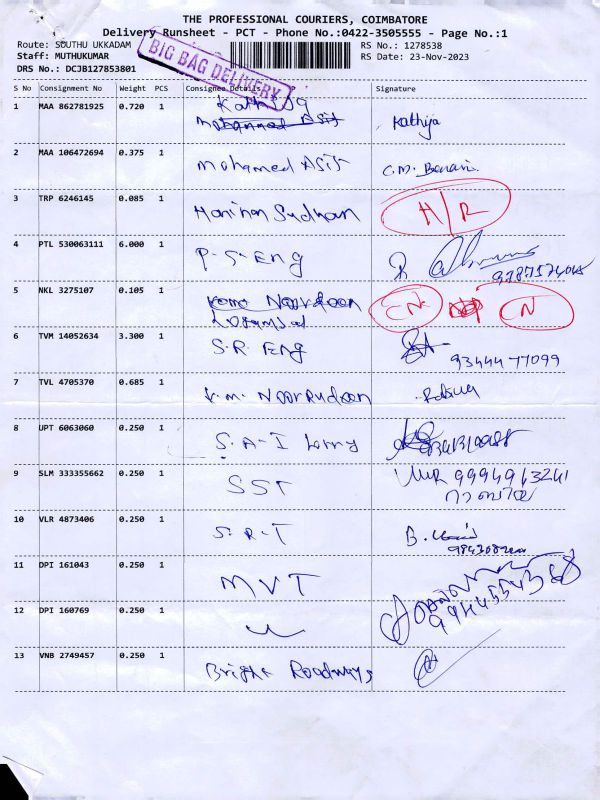 THE PROFESSIONAL COURIERS, COIMBATORE
Delivery Runsheet - PCT - Phone No.:0422-3505555 - Page No.:1
Route: SOUTHU UKKADAM
RS No.: 1278538
Staff: MUTHUKUMAR
RS Date: 23-Nov-2023
DRS No.: DCJB127853801
BIG BAG DELIVERY
S No Consignment No Weight PCS Consignee Details Signature
1 MAA 862781925 0.720 1 Mohammed Asif Kathija
2 MAA 106472694 0.375 1 Mohamed Asif C.M.
3 TRP 6246145 0.085 1 H/R
4 PTL 530063111 6.000 1 P.S. Eng
5 NKL 3275107 0.105 1 Noordeen CN N
6 TVM 14052634 3.300 1 S.R. Eng
9344477099
7 TVL 4705370 0.685 1 K.M. Noorrudeen
8 UPT 6063060 0.250 1 S.A.I Lorry
9 SLM 333355662 0.250 1 SST 9994963241
10 VLR 4873406 0.250 1 S.R.T B.
11 DPI 161043 0.250 1 MVT
12 DPI 160769 0.250 1
13 VNB 2749457 0.250 1 Bright Roadways